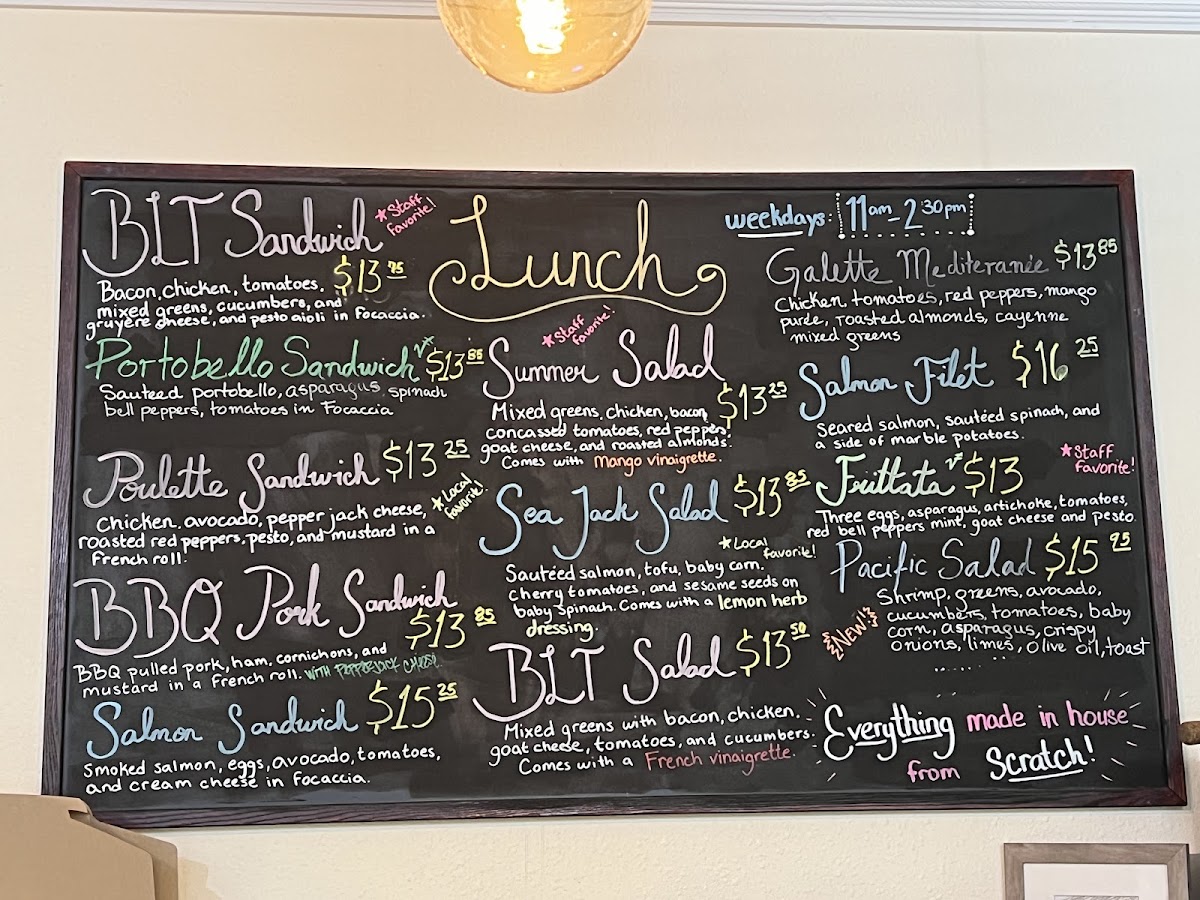 BLT Sandwich
★Staff
favorite!
$13.75
Bacon, chicken, tomatoes,
mixed greens, cucumbers, and
gruyere cheese, and pesto aioli in Focaccia.
Portobello Sandwich
V* $13 85
Sauteed portobello, asparagus, spinach
bell peppers, tomatoes in Focaccia
Poulette Sandwich $13 25
★Local
favorite!
Chicken, avocado, pepper jack cheese,
roasted red peppers, pesto, and mustard in a
French roll.
BBQ Pork Sandwich
$13 85
BBQ pulled pork, ham, cornichons, and
mustard in a French roll. WITH PEPPERJACK CHEESE
Salmon Sandwich $15 25
Smoked salmon, eggs, avocado, tomatoes,
and cream cheese in Focaccia.
Lunch
★Staff
favorite!
Summer Salad
$13 25
Mixed greens, chicken, bacon,
concassed tomatoes, red peppers,
goat cheese, and roasted almonds.
Comes with Mango vinaigrette.
Sea Jack Salad $13 85
★Local
favorite!
Sautéed salmon, tofu, baby corn,
cherry tomatoes, and sesame seeds on
baby spinach. Comes with a lemon herb
dressing.
BLT Salad $13 50
Mixed greens with bacon, chicken,
goat cheese, tomatoes, and cucumbers.
Comes with a French vinaigrette.
weekdays: 11am - 2:30pm
Galette Mediteranée $13 85
Chicken, tomatoes, red peppers, mango
purée, roasted almonds, cayenne
mixed greens
Salmon Filet $16 25
Seared salmon, sautéed spinach, and
a side of marble potatoes.
Frittata V* $13
★Staff
favorite!
Three eggs, asparagus, artichoke, tomatoes,
red bell peppers mint, goat cheese and pesto.
Pacific Salad $15 95
New!
Shrimp, greens, avocado,
cucumbers, tomatoes, baby
corn, asparagus, crispy
onions, limes, olive oil, toast
Everything made in house
from Scratch!